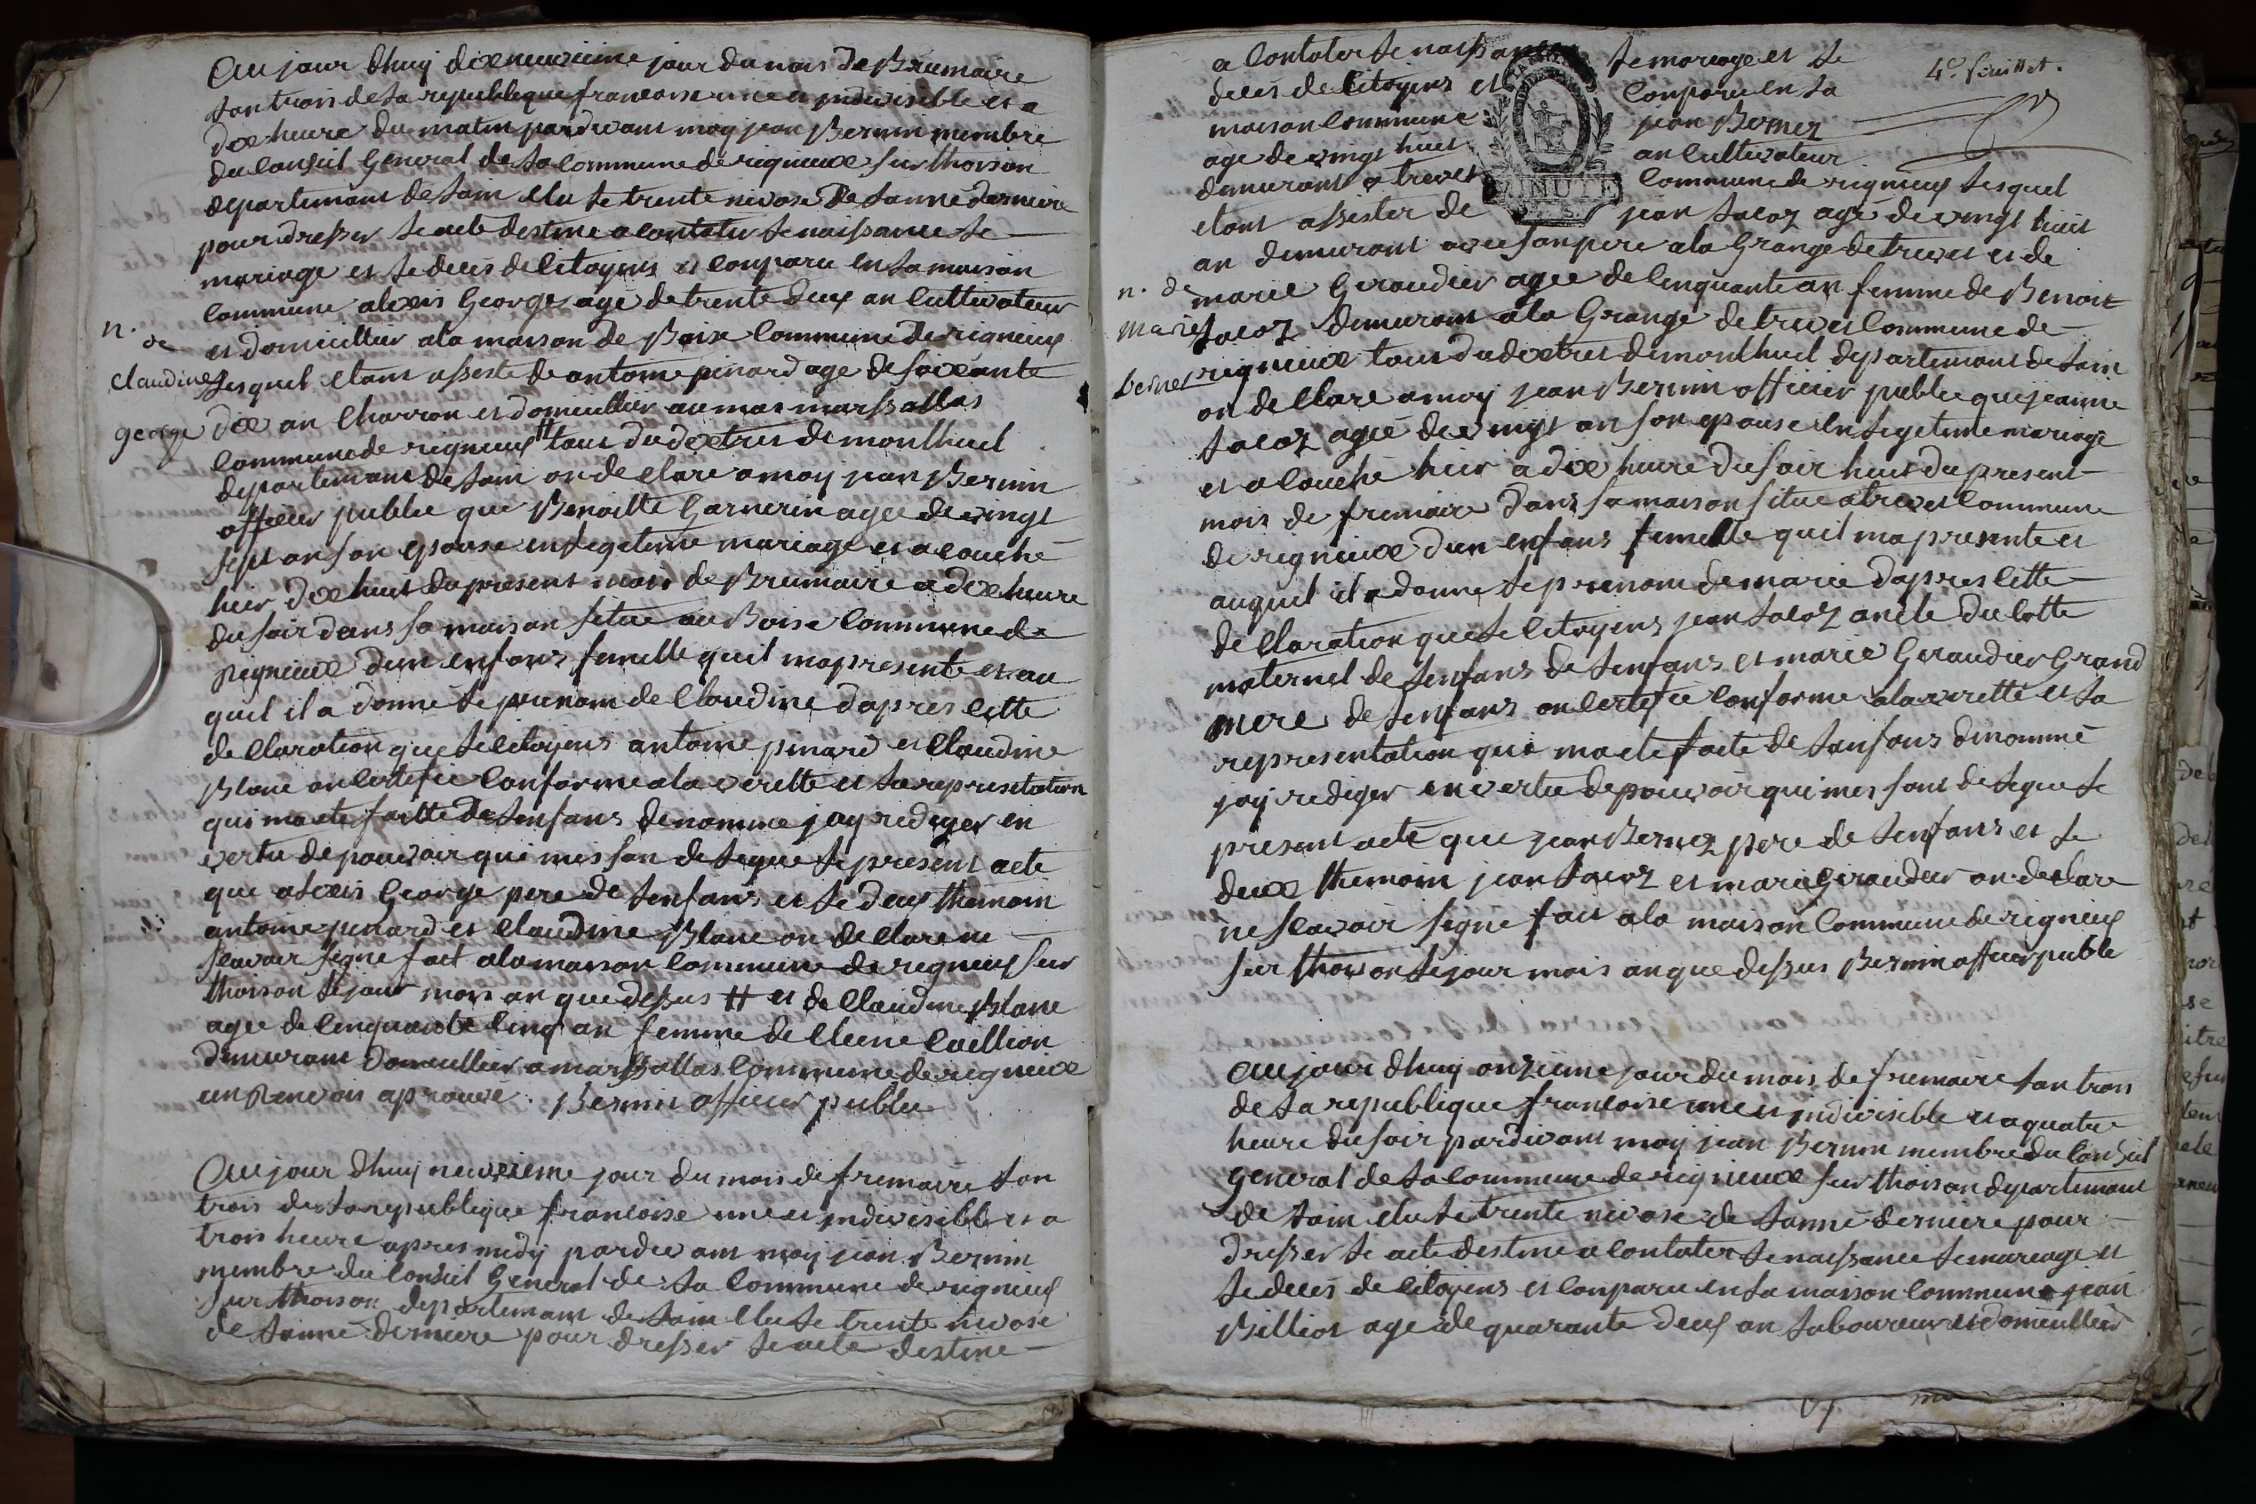 aujourdhuy dixneuvieme jour du mois de Brumaire
lan trois de la republique francoise une et indivisible et a
dix heure du matin pardevant moy jean Bernin membre
du Conseil General de la Commune de rignieux sur thoison
departemant de lain elu le trente nivose de lanné derniere
pour dresser le acte destine a Contater le naissance le
mariage et le deces de Citoyens et Conparu en la maison
Commune alexis George age de trente deux an Cultivateur
et domicillier a la maison de Boise Commune de rigneux
lesquel etant assisté de antoine pinard age de soixante
dix an Charron et domicillier au mas marssallas
Commune de rigneux # tous du dixtrés de montluel
departemant de lain on de Clare a moy jean Bernin
officier public que Benoitte Garnerin agee de vingt
sept an son epouse en legetime mariage et acouché
hier dixhuit du present mois de Brumaire a dix heure
du soir dans sa maison situé au Boise Commune de
rignieux dun enfans femelle quil mapresenté et au
quel il a donné le prenom de Claudine dapres cette
de Claration que le Citoyens antoine pinard et Claudine
Blanc on Certefié Conforme a la verette et la represetation
qui ma ete faitte de lenfans denomme jay rediger en
vertu de pouvoir qui mes son delegue le present acte
que alexis George pere de lenfans et le deux themoin
antoine pinard et Claudine Blanc on de Clare ne
scavoir signé fait a la maison Commune de rigneux sur
thoison le jour mois an que dessus # et de Claudine Blanc
agee de Cinquante Cinq an femme de
demurant domicillier a marssallas Commune de rignieux
un Renvois aprouvé. Bernin officier public
n. de
Claudine
george
aujourdhuy neuvieme jour du mois de fremaire lan
trois de la republique francoise une et indivisible et a
trois heure apres midy pardevant moy jean Bernin
membre du Conseil General de la Commune de rigneux
sur thoison departemant de lain elu le trente nivose
de lanné derniere pour dresser le acte destine
4e. feuillet.
a Contater le naissance le mariage et le
deces de Citoyens et Conparu en la
maison Commune jean Bernez
age de vingt huit an Cultivateur
demurant a treves Commune de rigneux lesquel
etant assister de jean Jacoz agé de vingt huit
an demurant avec son pere a la Grange de treves et de
marie Geraudier agee de Cinquante an femme de Benoit
Jacoz demurant a la Grange de treves Commune de
rignieux tous du dixtres de montluel departemant de lain
on de Clare a moy jean Bernin officier public que jeanne
Jacoz agée de vingt an son epouse en legetime mariage
et acouché hier a dix heure du soir huit du present
mois de fremaire dans sa maison situe a treves Commune
de rignieux dun enfans femelle quil ma presenté et
auquel il a donne le prenom de marie dapres cette
de Claration que le Citoyens jean Jacoz oncle du Cotte
maternel de lenfans de lenfans et marie Geraudier Grand
mere de lenfans on Certefié Conforme a la verette et la
representation qui ma ete faite de lanfans denommé
jay rediger en vertu de pouvoir qui mes sont delegue le
present acte que jean Bernez pere de lenfans et le
deux themoin jean Jacoz et marie Geraudier on declare
ne scavoir signe fait a la maison Commune de rigneux
sur thoison le jour mois an que dessus Bernin officier public
n. de
Marie
Bernez
aujourdhuy onzieme jour du mois de fremaire lan trois
de la republique francoise une et indivisible et a quatre
heure du soir pardevant moy jean Bernin membre du Conseil
general de la Commune de rignieux sur thoison departemant
de lain elu le trente nivose de lanné derniere pour
dresser le acte destine a Contater le naissance le mariage et
le deces de Citoyens et Conparu en la maison Commune jean
Billiot age de quarante deux an laboureur et domicillier
MINUTE